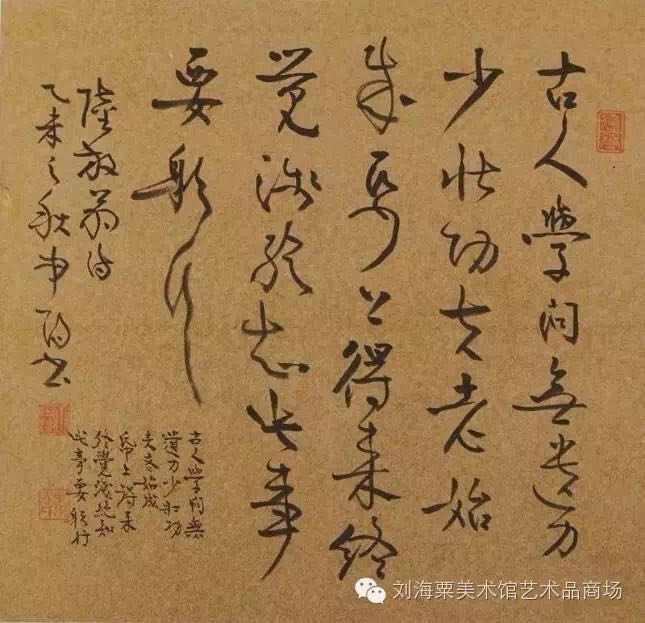 古人學问無遗力
少壮功夫老始
成纸上得来终
觉浅绝知此事
要躬行
陸放翁诗
乙未之秋
古人學问無
遗力少壮功
夫老始成
纸上得来
终覺浅绝知
此事要躬行
刘海粟美术馆艺术品商场